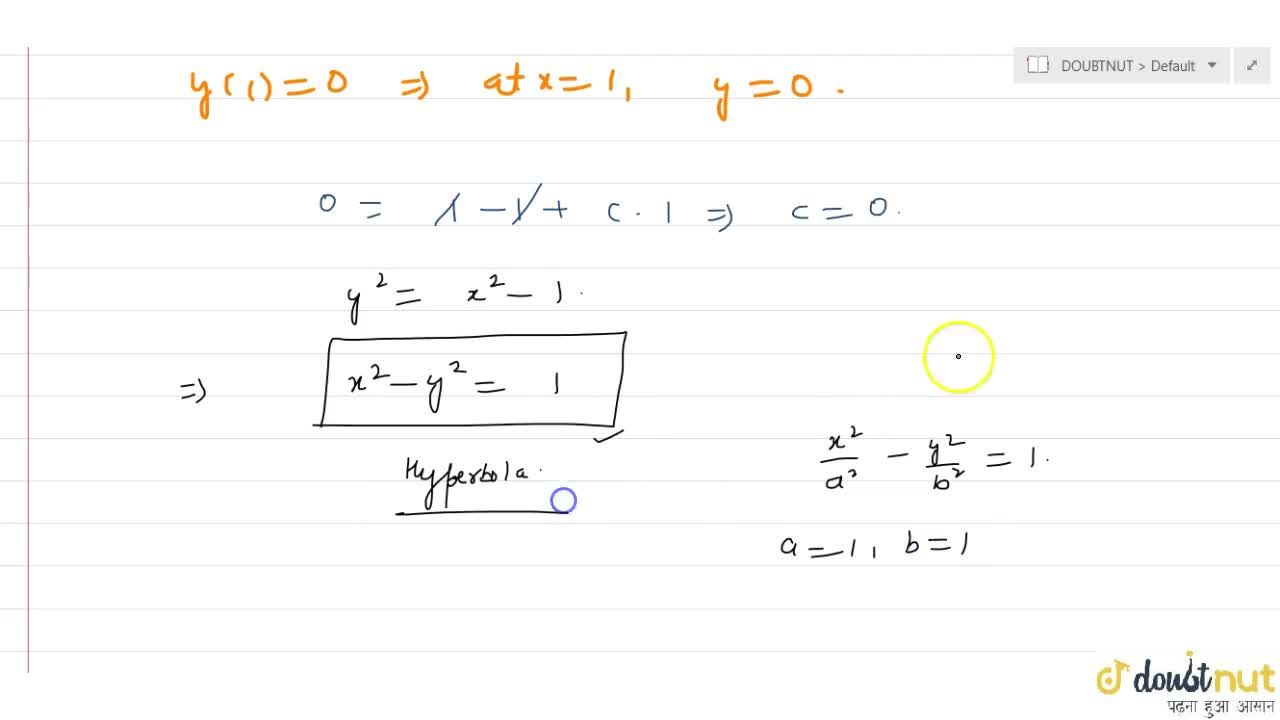 DOUBTNUT > Default
y(1) = 0 ⇒ at x = 1, y = 0.
0 = 1 - 1 + c · 1 ⇒ c = 0.
y² = x² - 1.
⇒ x² - y² = 1
Hyperbola.
x²/a² - y²/b² = 1.
a = 1, b = 1
doubtnut
पढ़ना हुआ आसान